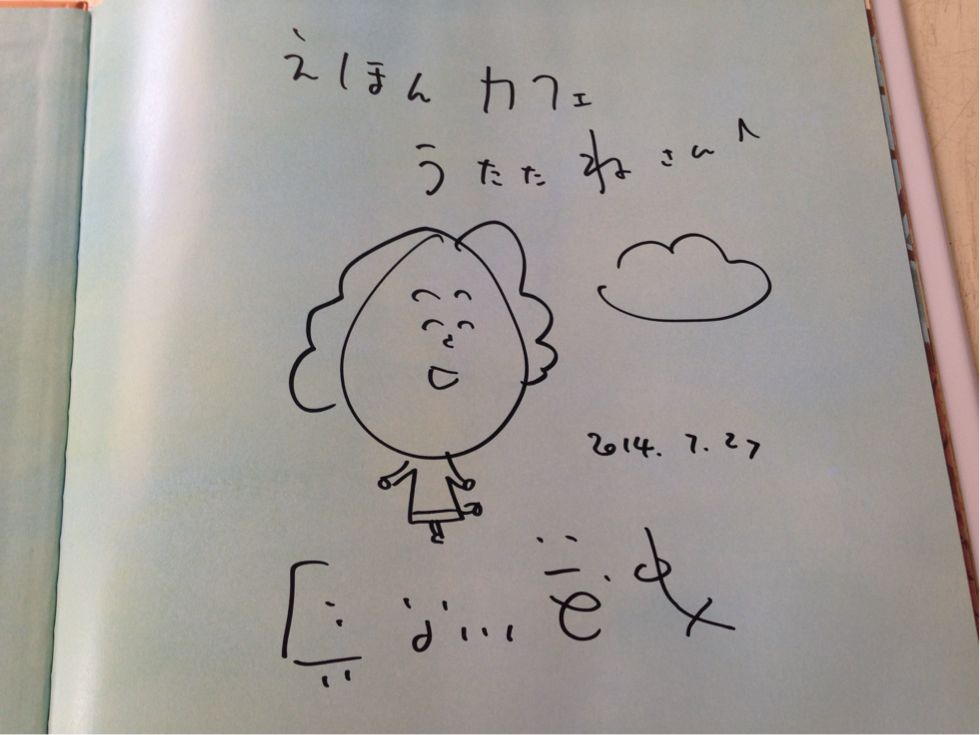 えほん カフェ
うたたねさんへ
2014.7.27